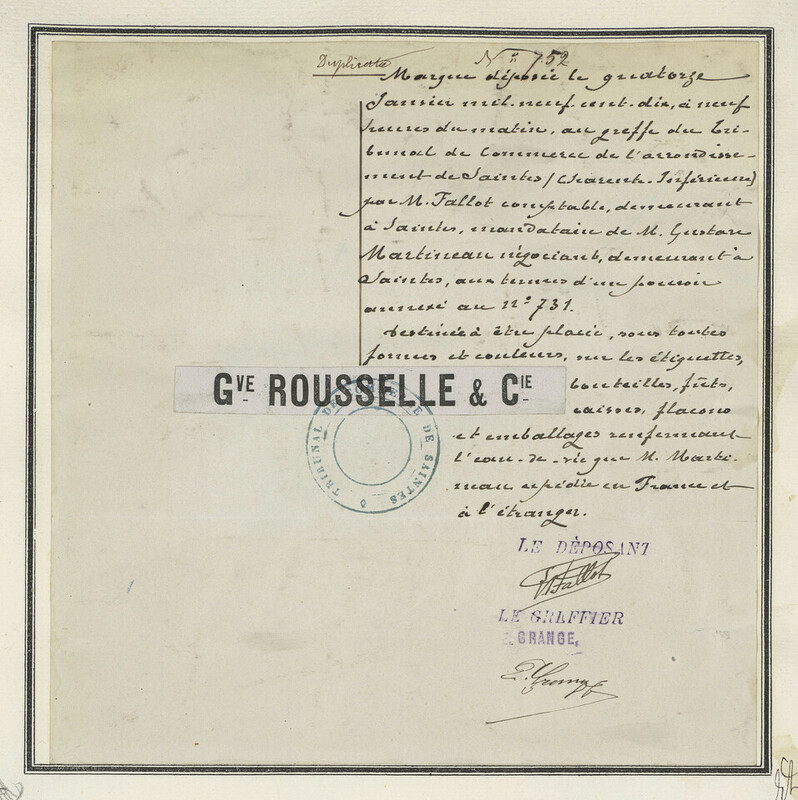 Duplicata
N° 752
Marque déposée le quatorze
Janvier mil-neuf cent-dix, à neuf
heures du matin, au greffe du Tri-
bunal de Commerce de l'arrondisse-
ment de Saintes (Charente-Inférieure)
par M. Fallot comptable, demeurant
à Saintes, mandataire de M. Gustave
Martineau négociant, demeurant à
Saintes, aux termes d'un pouvoir
annexé au n° 731.
Destinée à être placée, sous toutes
formes et couleurs, sur les étiquettes,
GVE ROUSSELLE & CIE
bouteilles, fûts,
caisses, flacons
et emballages renfermant
l'eau-de-vie que M. Marti-
neau expédie en France et
à l'étranger.
TRIBUNAL DE COMMERCE DE SAINTES
LE DÉPOSANT
Fallot
LE GREFFIER
GRANGE